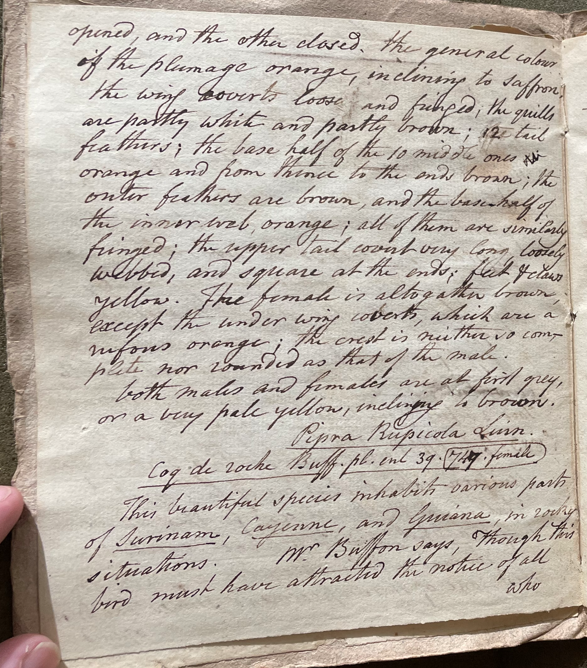 opened, and the other closed. the general colour
of the plumage orange, inclining to saffron
the wing coverts loose and fringed; the quills
are partly white and partly brown; 12 tail
feathers; the base half of the 10 middle ones
orange and from thence to the ends brown; the
outer feathers are brown, and the base half of
the inner web, orange; all of them are similarly
fringed; the upper tail covert very long, loosely
webbed, and square at the ends; feet & claws
yellow. The female is altogather brown
except the under wing coverts, which are a
rufous orange; the crest is neither so com-
plete nor rounded as that of the male.
both males and females are at first grey,
or a very pale yellow, inclining to brown.
Pipra Rupicola Linn.
Coq de roche Buff. pl. enl 39. 747. female
This beautiful species inhabits various parts
of Surinam, Cayenne, and Guiana, in rocky
situations. Mr Buffon says, Though this
bird must have attracted the notice of all
who